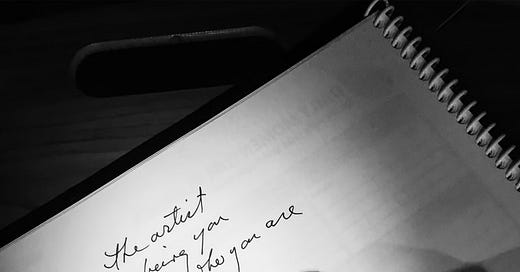 the artist
being you
who you are